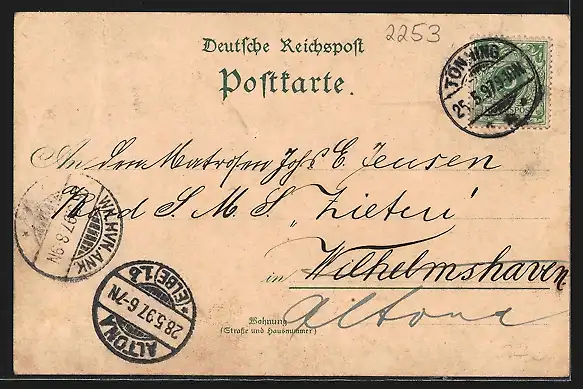 2253
Deutsche Reichspost
Postkarte.
TÖNNING
25.5.97.9-10N
An dem Matrosen Johs C. Jensen
a/Bord S. M. S. "Zieten"
in Wilhelmshaven
Altona
Wohnung
(Straße und Hausnummer)
W'HVN. ANK
97.8-9N
ALTONA
28.5.97.6-7N
*(ELBE)1.b